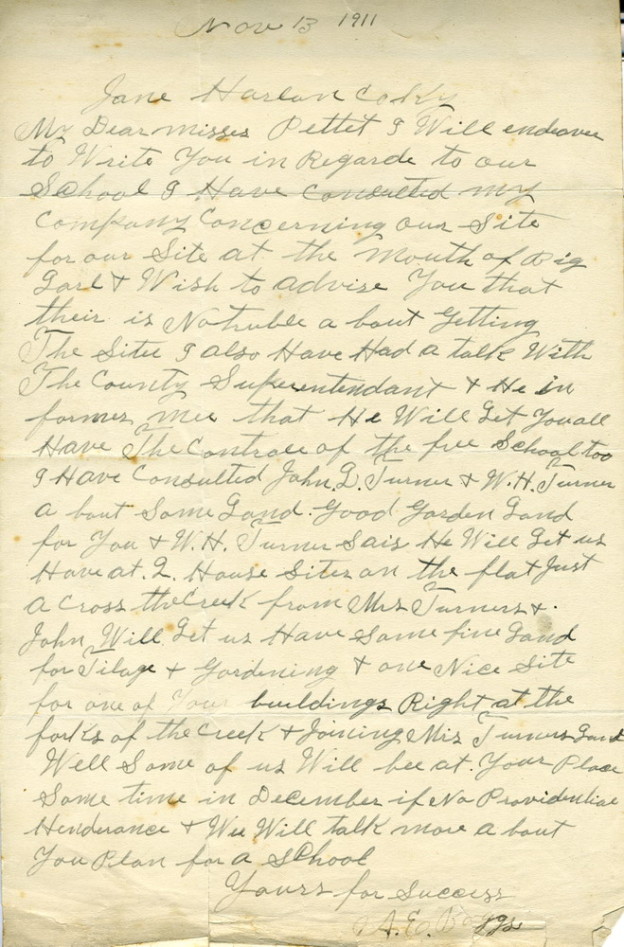 Nov 13 1911
Jane Harlan Co Ky
My Dear misses Pettet I Will endeaver
to Write You in Regarde to our
School I Have Consulted my
Company Concerning our Site
for our Site at the Mouth of Big
Larl & Wish to advise You that
their is No truble a bout Getting
The Siter I also Have Had a talk With
The County Superentendant & He in
formes mee that He Will Let You all
Have The Controle of the free School too
I Have Consulted John L. Turner & W.H. Turner
a bout Some Land Good Garden Land
for You & W.H. Turner Sais He Will Let us
Have at. 2. House Sites on the flat Just
a Cross the Creek from Mrs Turners &.
John Will Let us Have Some fine Land
for Tilage & Gardening & one Nice Site
for one of Your buildings Right at the
forks of the Creek & Joining Mis Turners Land
Well Some of us Will bee at. Your Place
Some time in December if No Providentiae
Henderance & Wee Will talk more a bout
You Plan for a School
Yours for Success
A. E. Boggs